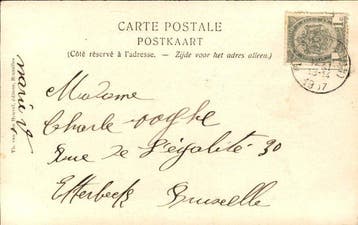 CARTE POSTALE
POSTKAART
(Côté réservé à l'adresse. — Zijde voor het adres alleen.)
Madame
Charle
Rue de l'égalité 30
Etterbeck
Bruxelle